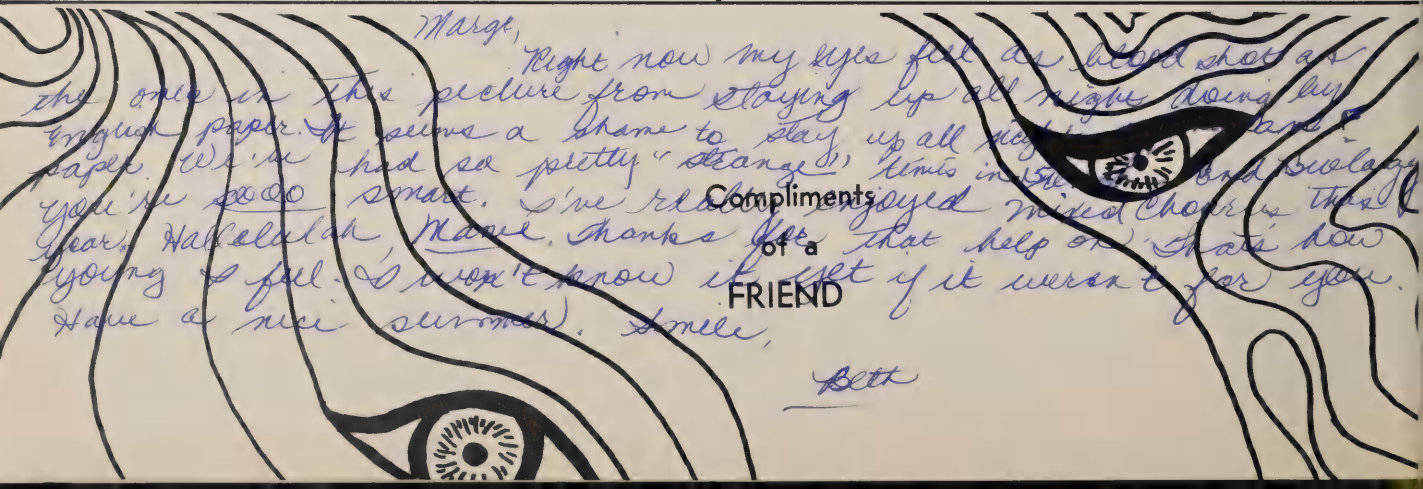 Marge,
Right now my eyes feel as blood shot as
the ones in this picture from staying up all night doing my
English paper. It seems a shame to stay up all
paper. We've had so pretty "strange" times in and Biology
you're sooo smart. I've really enjoyed mixed Chourus this
year. Hallolulah, Marge. Thanks for that help on that's how
young I feel. I won't know it yet if it weren't for you.
Have a nice summer. Smile,
Beth
Compliments
of a
FRIEND